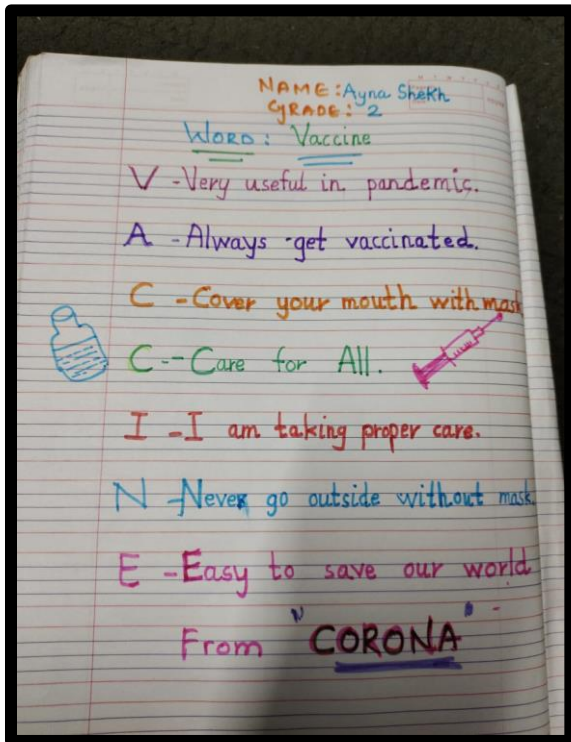 NAME: Ayna Shekh
GRADE: 2
WORD: Vaccine
V - Very useful in pandemic.
A - Always get vaccinated.
C - Cover your mouth with mask
C -- Care for All.
I - I am taking proper care.
N - Never go outside without mask.
E - Easy to save our world
From "CORONA"